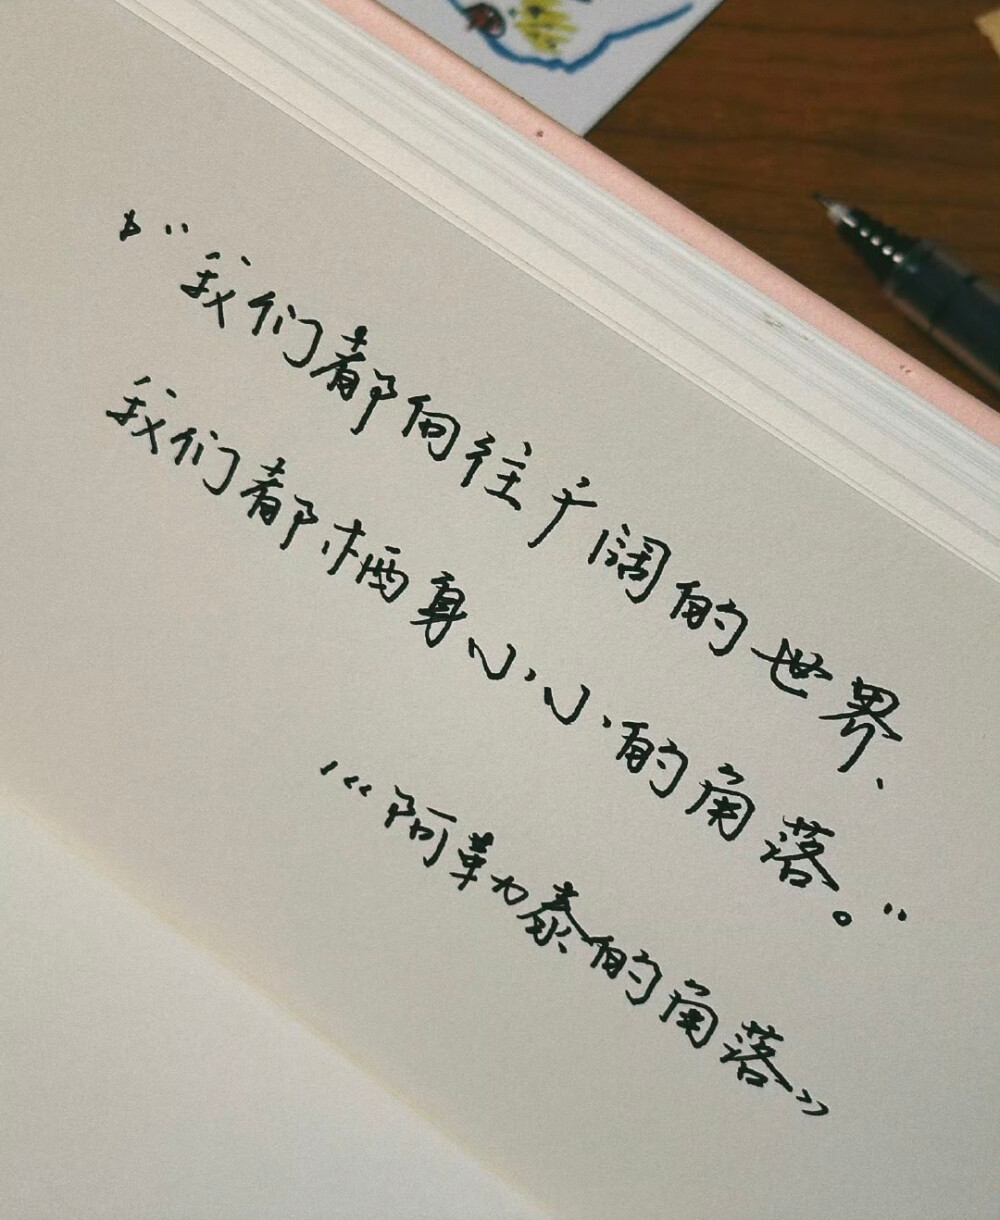 “我们都向往广阔的世界、
我们都栖身小小的角落。”
《阿勒泰的角落》